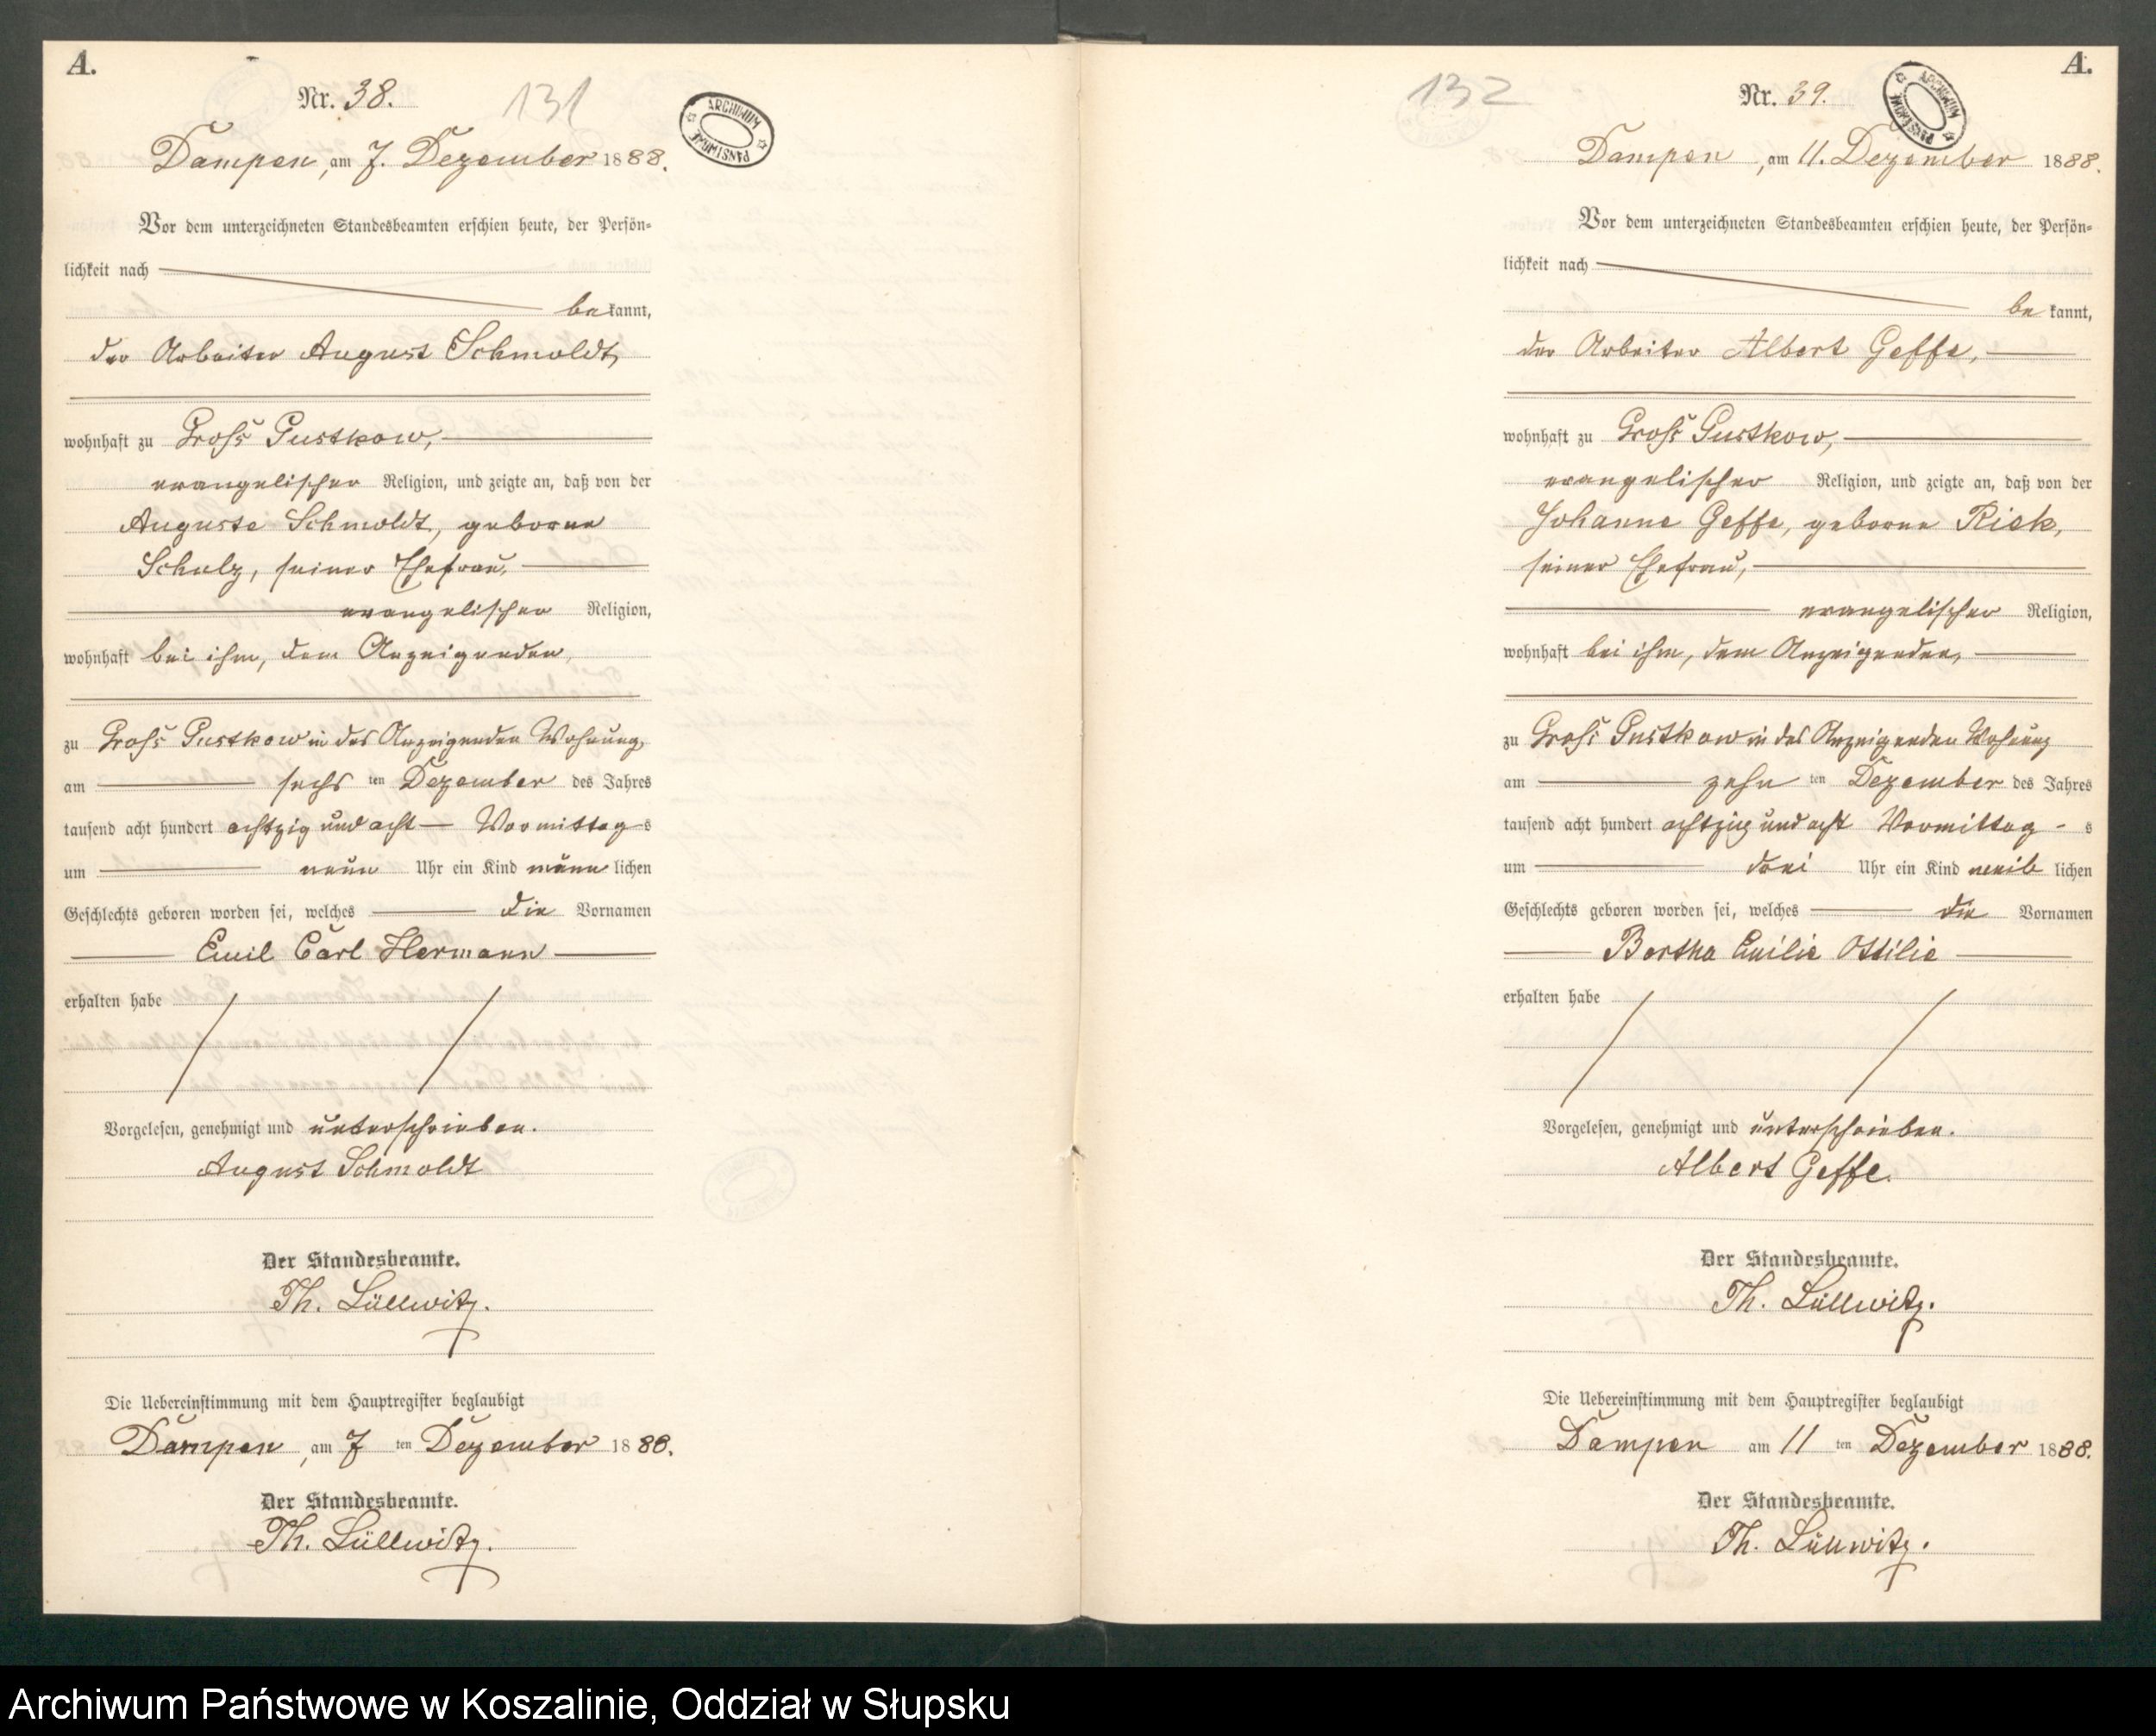 A.
Nr. 38.
131
ARCHIWUM PAŃSTWOWE
Dampen, am 7. Dezember 1888.
Vor dem unterzeichneten Standesbeamten erschien heute, der Persön-
lichkeit nach
bekannt,
der Arbeiter August Schmoldt,
wohnhaft zu Groß Gustkow,
evangelischer Religion, und zeigte an, daß von der
Auguste Schmoldt, geborne
Schulz, seiner Ehefrau,
evangelischer Religion,
wohnhaft bei ihm, dem Anzeigenden,
zu Groß Gustkow in des Anzeigenden Wohnung,
am sechsten Dezember des Jahres
tausend acht hundert achtzig und acht Vormittags
um neun Uhr ein Kind männlichen
Geschlechts geboren worden sei, welches die Vornamen
Emil Carl Hermann
erhalten habe
Vorgelesen, genehmigt und unterschrieben.
August Schmoldt
Der Standesbeamte.
Th. Lüllwitz.
Die Uebereinstimmung mit dem Hauptregister beglaubigt
Dampen, am 7 ten Dezember 1888.
Der Standesbeamte.
Th. Lüllwitz.
A.
132
Nr. 39.
ARCHIWUM PAŃSTWOWE
Dampen, am 11. Dezember 1888.
Vor dem unterzeichneten Standesbeamten erschien heute, der Persön-
lichkeit nach
bekannt,
der Arbeiter Albert Geffe,
wohnhaft zu Groß Gustkow,
evangelischer Religion, und zeigte an, daß von der
Johanne Geffe, geborne Riek,
seiner Ehefrau,
evangelischer Religion,
wohnhaft bei ihm, dem Anzeigenden,
zu Groß Gustkow in des Anzeigenden Wohnung
am zehnten Dezember des Jahres
tausend acht hundert achtzig und acht Vormittag-s
um drei Uhr ein Kind weiblichen
Geschlechts geboren worden sei, welches die Vornamen
Bertha Emilie Ottilie
erhalten habe
Vorgelesen, genehmigt und unterschrieben.
Albert Geffe.
Der Standesbeamte.
Th. Lüllwitz.
Die Uebereinstimmung mit dem Hauptregister beglaubigt
Dampen am 11 ten Dezember 1888.
Der Standesbeamte.
Th. Lüllwitz.
Archiwum Państwowe w Koszalinie, Oddział w Słupsku